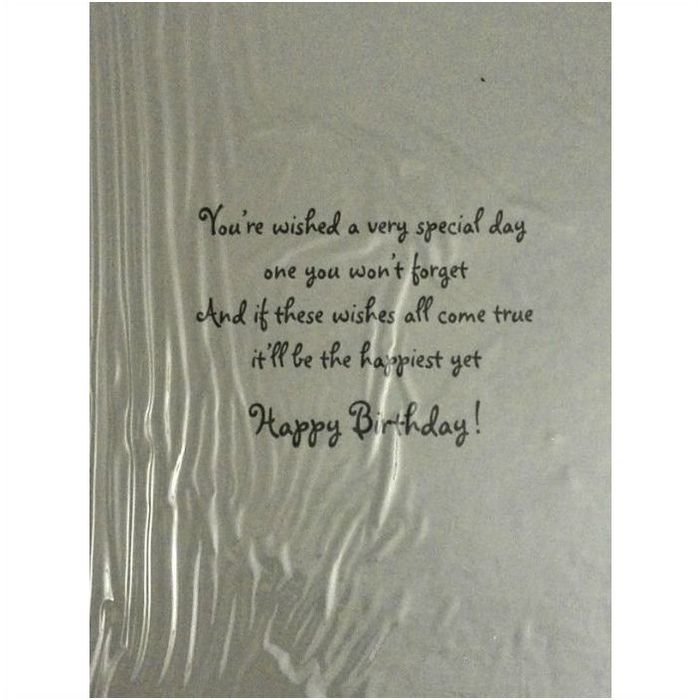 You're wished a very special day
one you won't forget
And if these wishes all come true
it'll be the happiest yet
Happy Birthday!